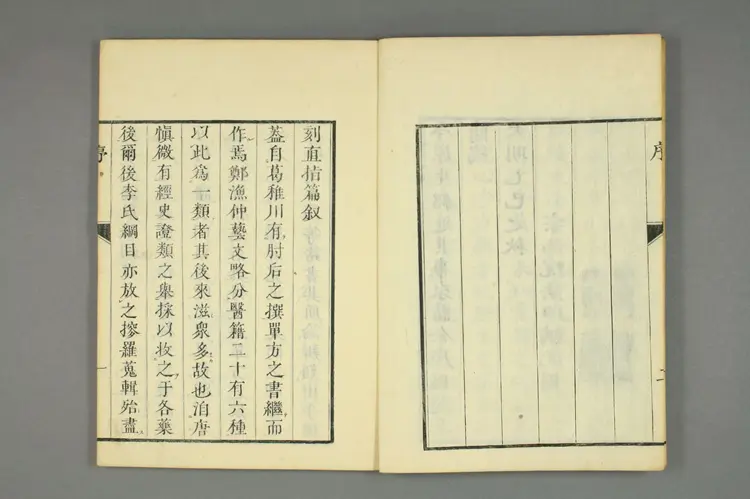 序
刻直指篇叙
蓋自葛稚川有肘后之撰單方之書繼而
作焉鄭漁仲藝文略分醫籍二十有六種
以此爲一類者其後來滋衆多故也洎唐
愼微有經史證類之舉採以收之于各藥
後爾後李氏綱目亦放之摉羅蒐輯殆盡
序
一